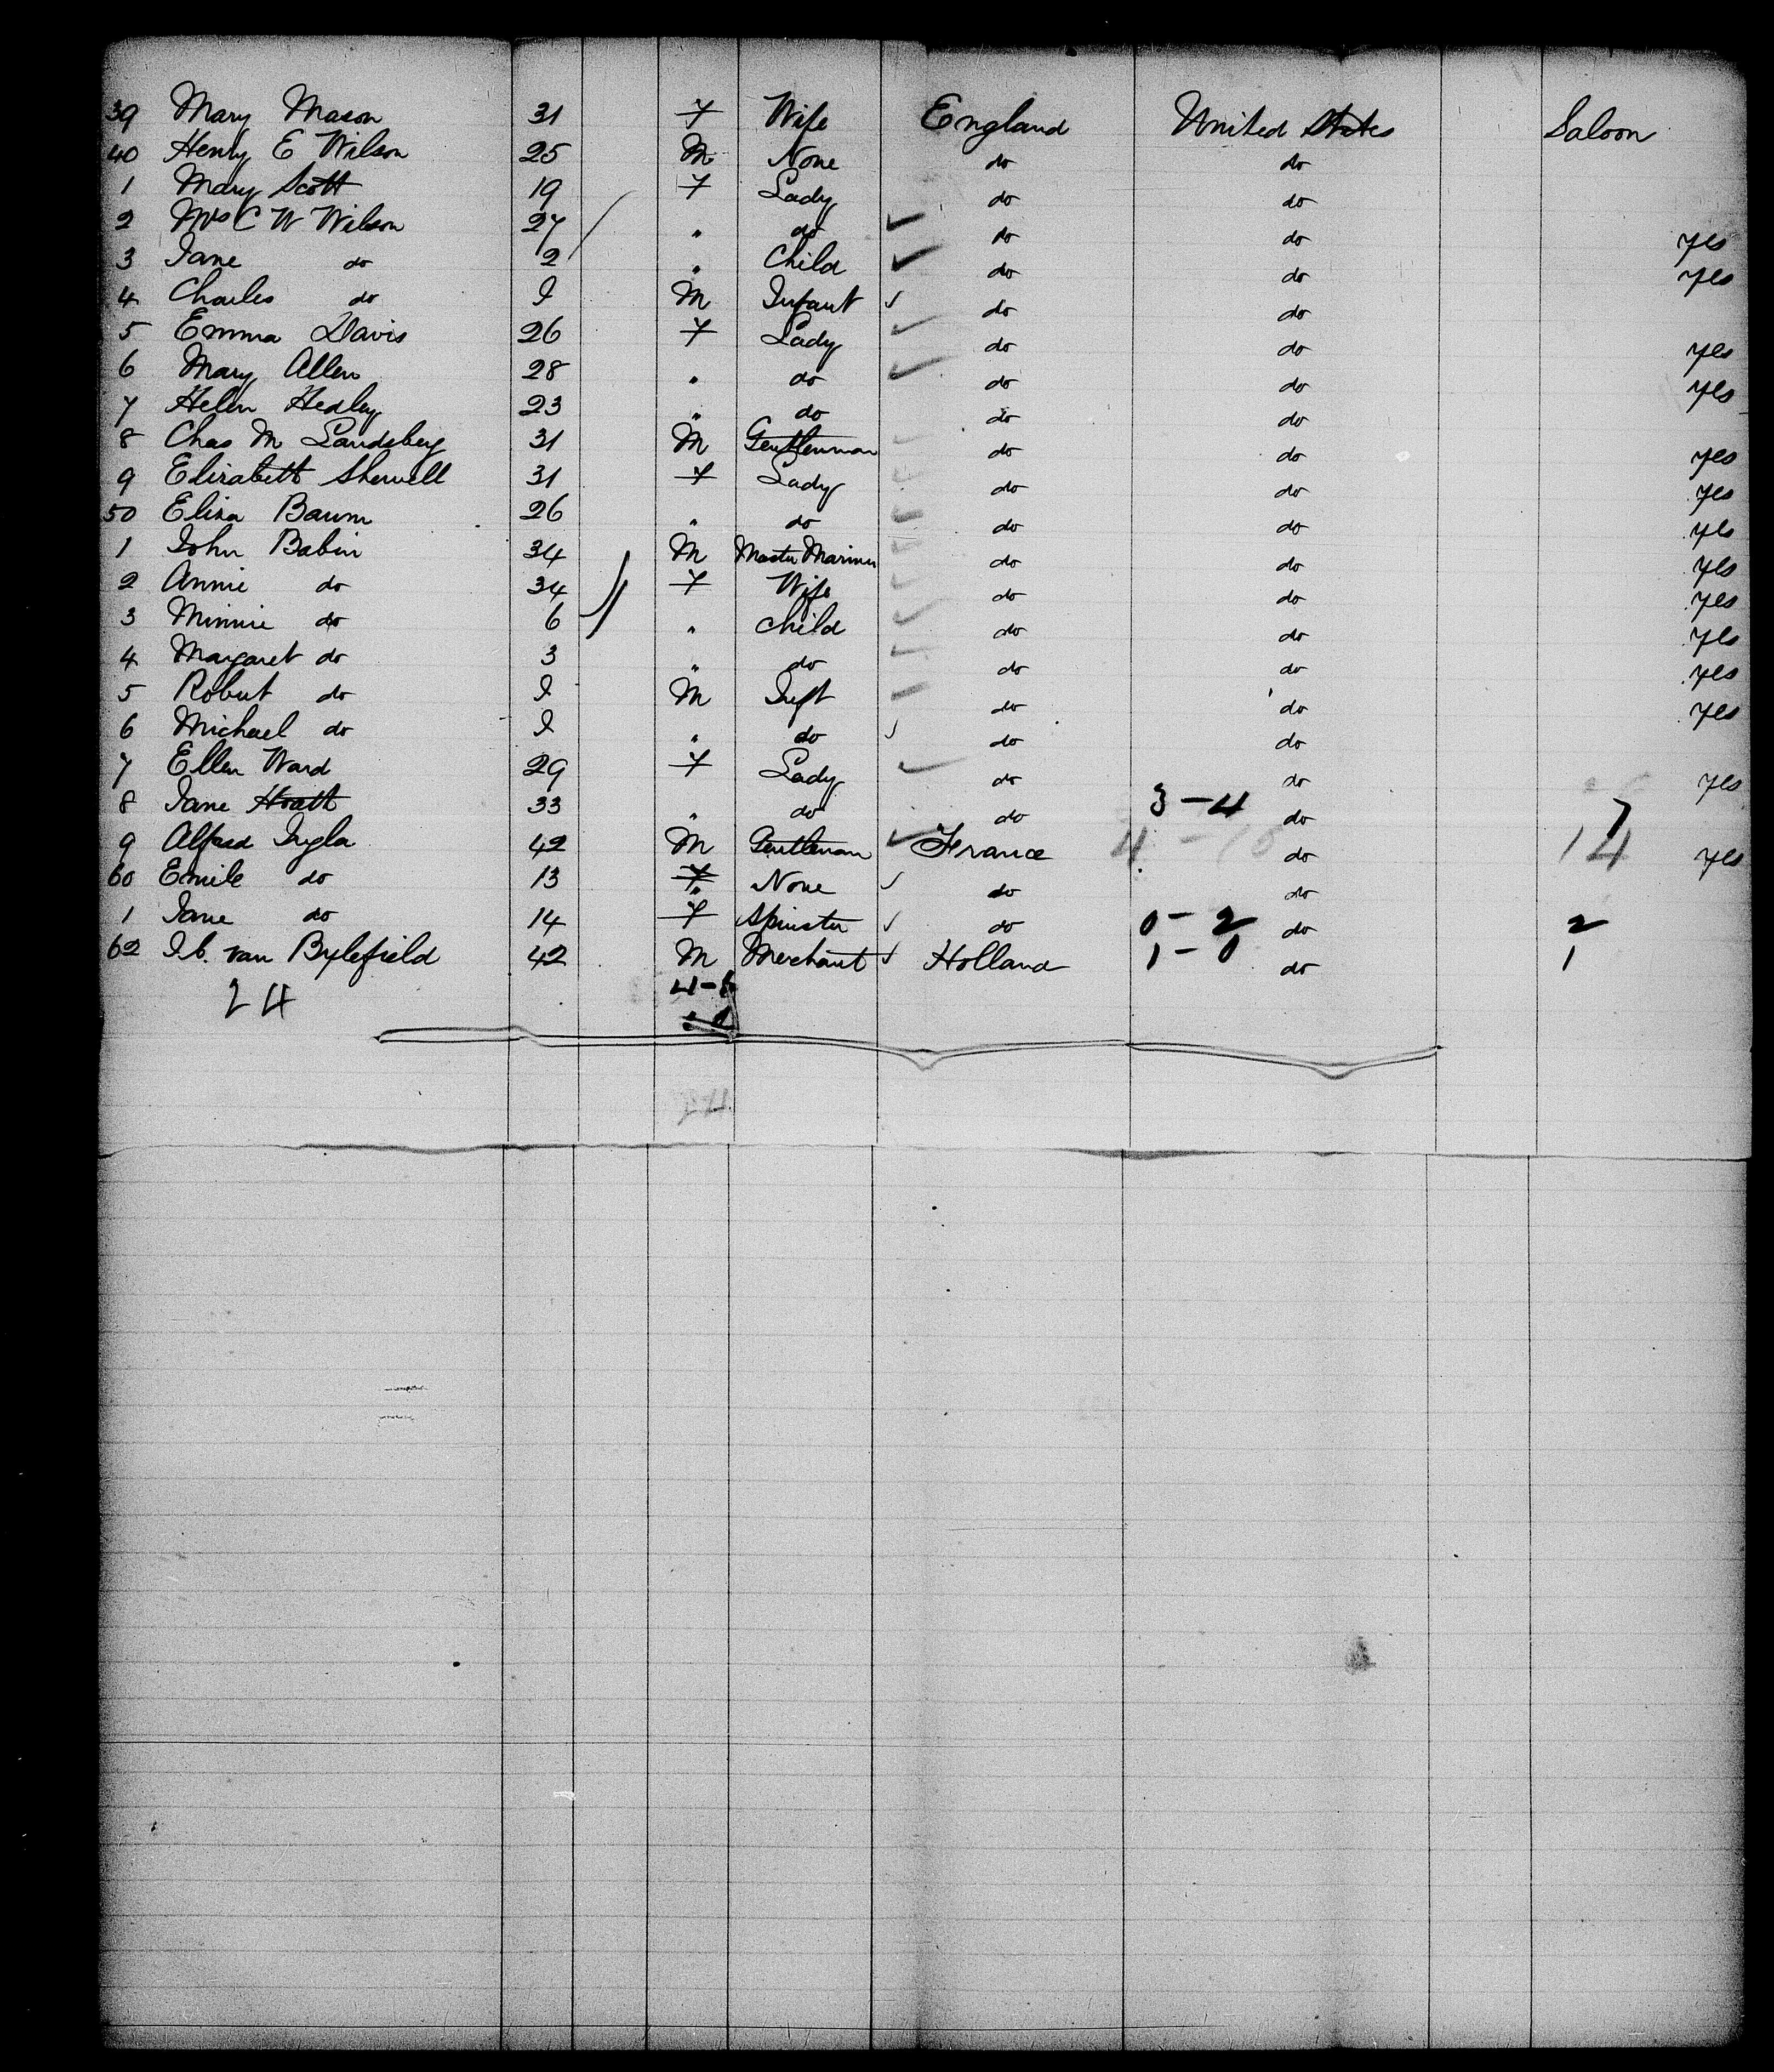 39 Mary Mason 31 F Wife England United States Saloon
40 Henry E Wilson 25 M None do do
1 Mary Scott 19 F Lady do do
2 Mrs C W Wilson 27 " do do do yes
3 Jane do 2 " Child do do yes
4 Charles do I M Infant do do
5 Emma Davis 26 F Lady do do yes
6 Mary Allen 28 " do do do yes
7 Helen Hedley 23 " do do do
8 Chas M Landsberg 31 M Gentleman do do yes
9 Elizabeth Sherwell 31 F Lady do do yes
50 Eliza Baum 26 " do do do yes
1 John Babin 34 M Master Mariner do do yes
2 Annie do 34 F Wife do do yes
3 Minnie do 6 " Child do do yes
4 Margaret do 3 " do do do yes
5 Robert do I M Inft do do yes
6 Michael do I " do do do
7 Ellen Ward 29 F Lady do do yes
8 Jane 33 " do do 3-4 do 7
9 Alfred Ingla 42 M Gentleman France do 14 yes
60 Emile do 13 " None do do
1 Jane do 14 F Spinster do 0-2 do 2
62 van Bylefield 42 M Merchant Holland 1-0 do 1
24